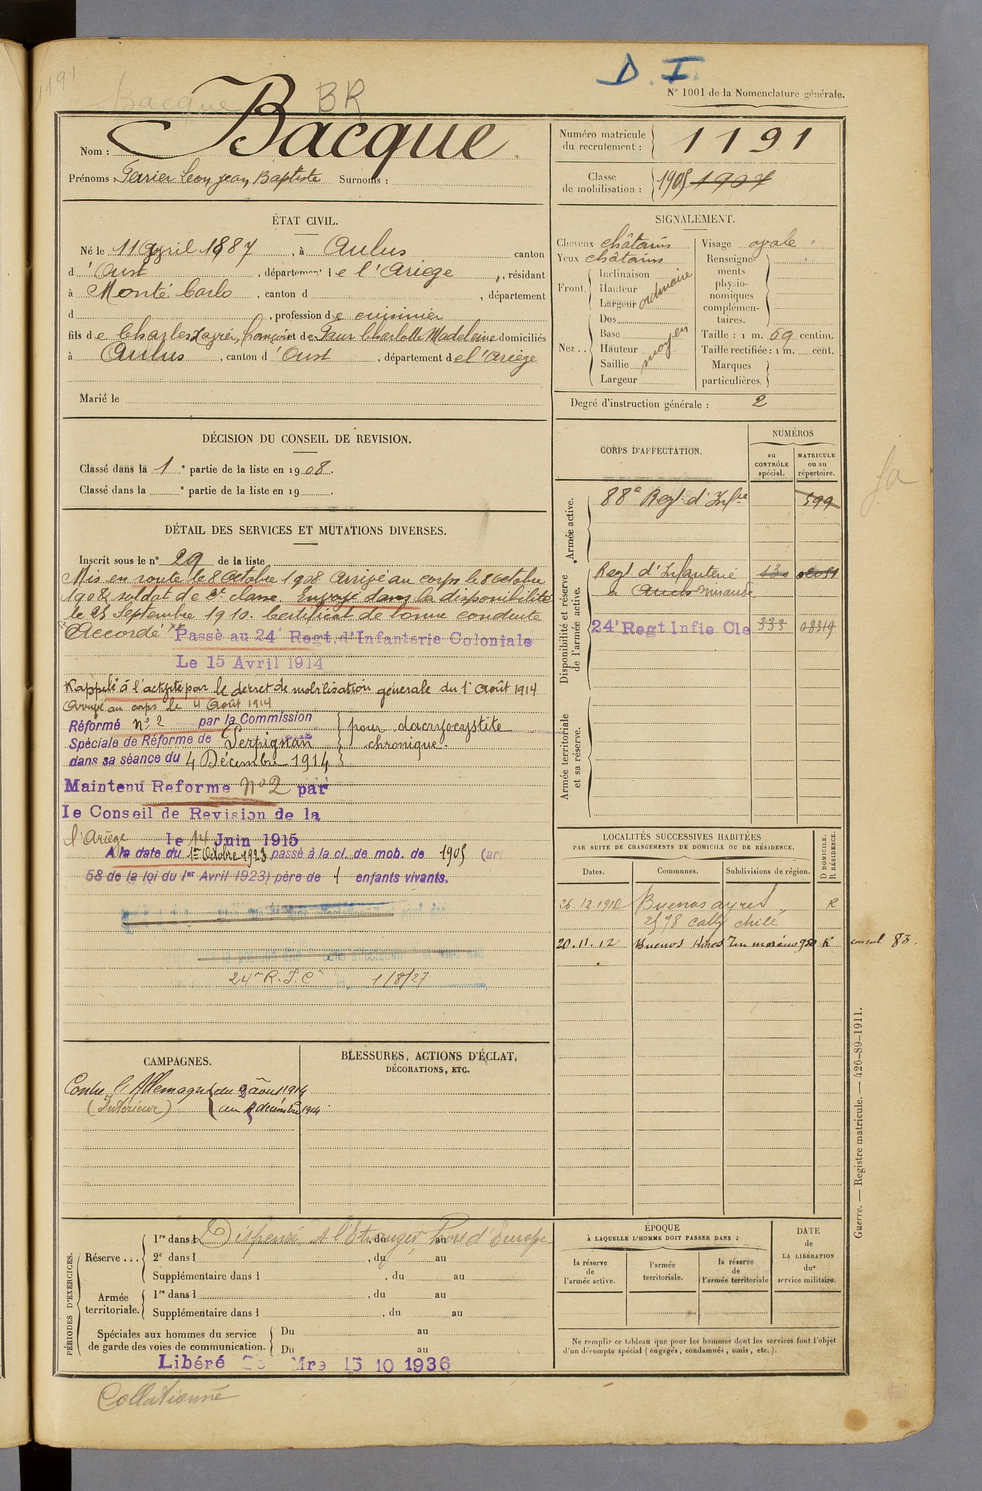 1191
Bacque BR
D. I.
N° 1001 de la Nomenclature générale.
Nom : Bacque
Prénoms : Léon Jean Baptiste Surnoms :
Numéro matricule du recrutement : 1191
Classe de mobilisation : 1905 1907
ÉTAT CIVIL.
Né le 11 Avril 1887, à Aulus canton
d'Oust, département de l'Ariège, résidant
à Monté Carlo, canton d , département
d , profession de cuisinier
fils de Charles, françois et de Charlotte Madeleine domiciliés
à Aulus, canton d'Oust, département de l'Ariège
Marié le
SIGNALEMENT.
Cheveux châtains
Yeux châtains
Front. Inclinaison Hauteur Largeur ordinaire
Nez.. Dos Base Hauteur Saillie Largeur moyen
Visage ovale
Renseignements physionomiques complémentaires.
Taille : 1 m. 69 centim.
Taille rectifiée : 1 m. cent.
Marques particulières.
Degré d'instruction générale : 2
DÉCISION DU CONSEIL DE REVISION.
Classé dans la 1e partie de la liste en 1908.
Classé dans la e partie de la liste en 19 .
DÉTAIL DES SERVICES ET MUTATIONS DIVERSES.
Inscrit sous le n° 29 de la liste
Mis en route le 8 Octobre 1908 arrivé au corps le 8 octobre
1908, soldat de 2e classe. Envoyé dans la disponibilité
le 25 Septembre 1910. Certificat de bonne conduite
"Accordé" Passé au 24e Regt d'Infanterie Coloniale
Le 15 Avril 1914
Rappelé à l'activité par le décret de mobilisation générale du 1er Août 1914
Arrivé au corps le 4 Août 1914
Réformé n° 2 par la Commission
Spéciale de Réforme de Perpignan
dans sa séance du 4 Décembre 1914
pour dacryocystite
chronique.
Maintenu Reforme N°2 par
le Conseil de Revision de la
l'Ariège le 14 Juin 1915
A la date du 1er Octobre 1923 passé à la cl. de mob. de 1905 (art
58 de la loi du 1er Avril 1923) père de 1 enfants vivants.
24e R.I.C. le 1/8/27
CORPS D'AFFECTATION.
NUMÉROS
au CONTRÔLE spécial.
MATRICULE ou au répertoire.
Armée active.
88e Regt d'Infie 599
Disponibilité et réserve de l'armée active.
Regt d'Infanterie
à Auch Mirande
24e Regt Infie Cle 333 08319
Armée territoriale et sa réserve.
LOCALITÉS SUCCESSIVES HABITÉES
PAR SUITE DE CHANGEMENTS DE DOMICILE OU DE RÉSIDENCE.
Dates. Communes. Subdivisions de région. D DOMICILE. R RÉSIDENCE.
26.12.1910 Buenos ayres R
2578 calle chile
20.11.12 Buenos Aires 980 R consul 83.
CAMPAGNES.
Contre l'Allemagne du 2 août 1914
(Intérieur) au 4 décembre 1914
BLESSURES, ACTIONS D'ÉCLAT,
DÉCORATIONS, ETC.
PÉRIODES D'EXERCICES.
Réserve ... 1re dans l , du au
Dispensé A l'Etranger hors d'Europe
2e dans l , du au
Supplémentaire dans l , du au
Armée territoriale. 1re dans l , du au
Supplémentaire dans l , du au
Spéciales aux hommes du service de garde des voies de communication. Du au
Du au
Libéré Mre 15 10 1936
ÉPOQUE
À LAQUELLE L'HOMME DOIT PASSER DANS :
la réserve de l'armée active.
l'armée territoriale.
la réserve de l'armée territoriale
DATE de LA LIBÉRATION du service militaire.
Ne remplir ce tableau que pour les hommes dont les services font l'objet
d'un décompte spécial (engagés, condamnés, omis, etc.).
Guerre. — Registre matricule. — 426-89-1911.
Collationné